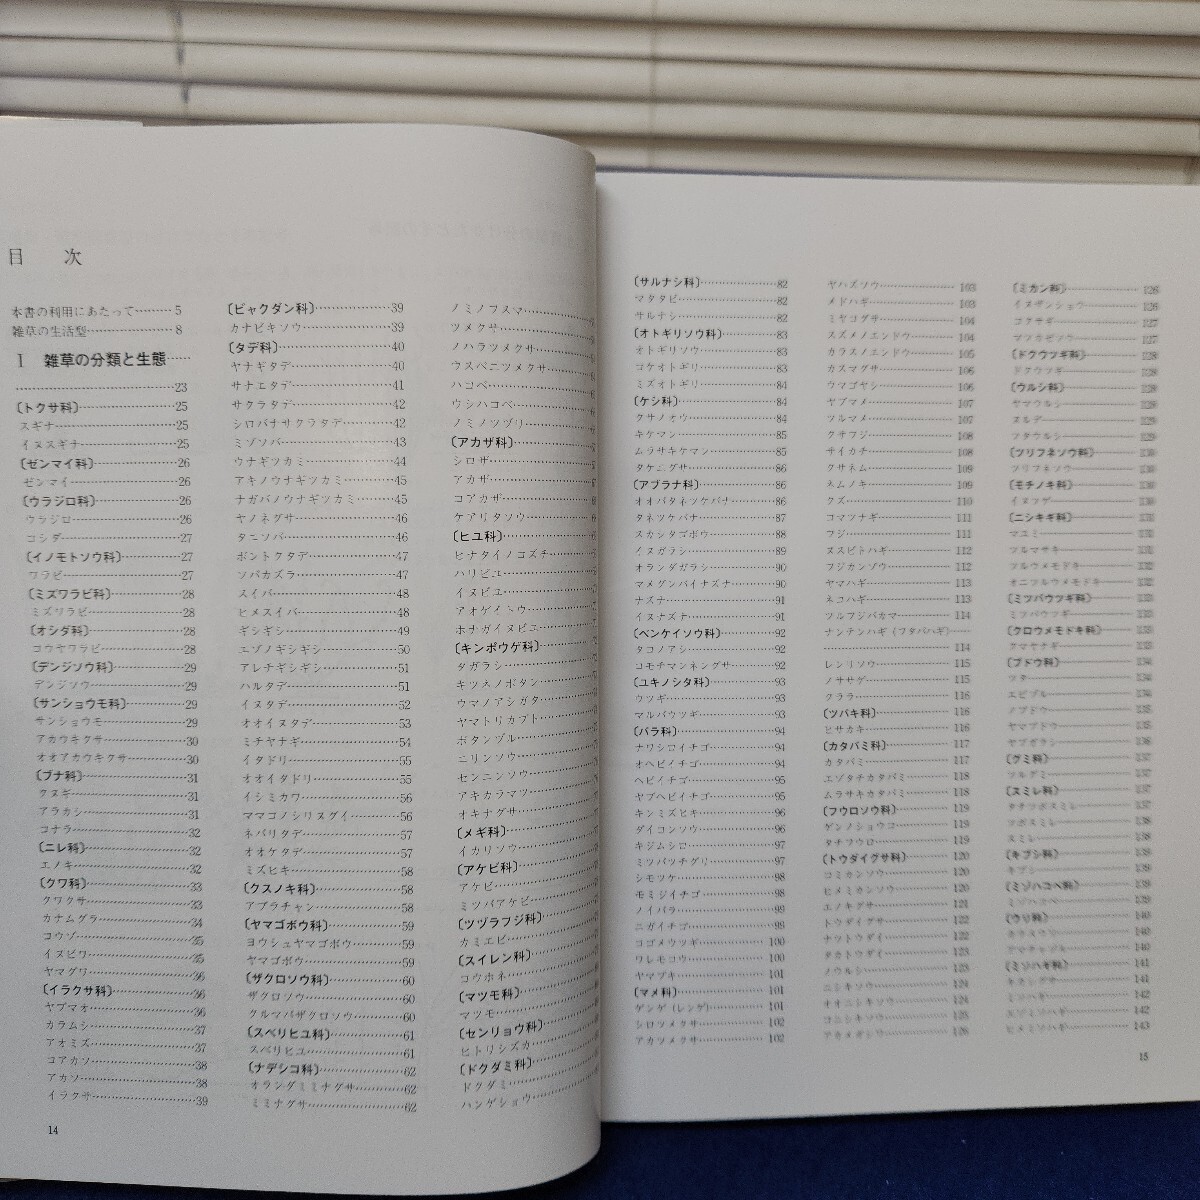 目　次
本書の利用にあたって………5
雑草の生活型………………8
1　雑草の分類と生態……
………………………23
〔トクサ科〕………………25
スギナ………………25
イヌスギナ………………25
〔ゼンマイ科〕………………26
ゼンマイ………………26
〔ウラジロ科〕………………26
ウラジロ………………26
コシダ………………27
〔イノモトソウ科〕………………27
ワラビ………………27
〔ミズワラビ科〕………………28
ミズワラビ………………28
〔オシダ科〕………………28
コウヤワラビ………………28
〔デンジソウ科〕………………29
デンジソウ………………29
〔サンショウモ科〕………………29
サンショウモ………………29
アカウキクサ………………30
オオアカウキクサ………………30
〔ブナ科〕………………31
クヌギ………………31
アラカシ………………31
コナラ………………32
〔ニレ科〕………………32
エノキ………………32
〔クワ科〕………………33
クワクサ………………33
カナムグラ………………34
コウゾ………………35
イヌビワ………………35
ヤマグワ………………36
〔イラクサ科〕………………36
ヤブマオ………………36
カラムシ………………37
アオミズ………………37
コアカソ………………38
アカソ………………38
イラクサ………………39
14
〔ビャクダン科〕………………39
カナビキソウ………………39
〔タデ科〕………………40
ヤナギタデ………………40
サナエタデ………………41
サクラタデ………………42
シロバナサクラタデ………………42
ミゾソバ………………43
ウナギツカミ………………44
アキノウナギツカミ………………45
ナガバノウナギツカミ………………45
ヤノネグサ………………46
タニソバ………………46
ボントクタデ………………47
ソバカズラ………………47
スイバ………………48
ヒメスイバ………………48
ギシギシ………………49
エゾノギシギシ………………50
アレチギシギシ………………51
ハルタデ………………51
イヌタデ………………52
オオイヌタデ………………53
ミチヤナギ………………54
イタドリ………………55
オオイタドリ………………55
イシミカワ………………56
ママコノシリヌグイ………………56
ネバリタデ………………57
オオケタデ………………57
ミズヒキ………………58
〔クスノキ科〕………………58
アブラチャン………………58
〔ヤマゴボウ科〕………………59
ヨウシュヤマゴボウ………………59
ヤマゴボウ………………59
〔ザクロソウ科〕………………60
ザクロソウ………………60
クルマバザクロソウ………………60
〔スベリヒユ科〕………………61
スベリヒユ………………61
〔ナデシコ科〕………………62
オランダミミナグサ………………62
ミミナグサ………………62
ノミノフスマ………………
ツメクサ………………
ノハラツメクサ………………
ウスベニツメクサ………………
ハコベ………………
ウシハコベ………………
ノミノツヅリ………………
〔アカザ科〕………………
シロザ………………
アカザ………………
コアカザ………………
ケアリタソウ………………
〔ヒユ科〕………………
ヒナタイノコズチ………………
ハリビユ………………
イヌビユ………………
アオゲイトウ………………
ホナガイヌビユ………………
〔キンポウゲ科〕………………
タガラシ………………
キツネノボタン………………
ウマノアシガタ………………
ヤマトリカブト………………
ボタンヅル………………
ニリンソウ………………
センニンソウ………………
アキカラマツ………………
オキナグサ………………
〔メギ科〕………………
イカリソウ………………
〔アケビ科〕………………
アケビ………………
ミツバアケビ………………
〔ツヅラフジ科〕………………
カミエビ………………
〔スイレン科〕………………
コウホネ………………
〔マツモ科〕………………
マツモ………………
〔センリョウ科〕………………
ヒトリシズカ………………
〔ドクダミ科〕………………
ドクダミ………………
ハンゲショウ………………
〔サルナシ科〕………………82
マタタビ………………82
サルナシ………………82
〔オトギリソウ科〕………………83
オトギリソウ………………83
コケオトギリ………………83
ミズオトギリ………………84
〔ケシ科〕………………84
クサノオウ………………84
キケマン………………85
ムラサキケマン………………85
タケニグサ………………86
〔アブラナ科〕………………86
オオバタネツケバナ………………86
タネツケバナ………………87
スカシタゴボウ………………88
イヌガラシ………………89
オランダガラシ………………90
マメグンバイナズナ………………90
ナズナ………………91
イヌナズナ………………91
〔ベンケイソウ科〕………………92
タコノアシ………………92
コモチマンネングサ………………92
〔ユキノシタ科〕………………93
ウツギ………………93
マルバウツギ………………93
〔バラ科〕………………94
ナワシロイチゴ………………94
オヘビイチゴ………………94
ヘビイチゴ………………95
ヤブヘビイチゴ………………95
キンミズヒキ………………96
ダイコンソウ………………96
キジムシロ………………97
ミツバツチグリ………………97
シモツケ………………98
モミジイチゴ………………98
ノイバラ………………99
ニガイチゴ………………99
コゴメウツギ………………100
ワレモコウ………………100
ヤマブキ………………101
〔マメ科〕………………101
ゲンゲ（レンゲ）………………101
シロツメクサ………………102
アカツメクサ………………102
ヤハズソウ………………103
メドハギ………………103
ミヤコグサ………………104
スズメノエンドウ………………104
カラスノエンドウ………………105
カスマグサ………………106
ウマゴヤシ………………106
ヤブマメ………………107
ツルマメ………………107
クサフジ………………108
サイカチ………………108
クサネム………………109
ネムノキ………………109
クズ………………110
コマツナギ………………111
フジ………………111
ヌスビトハギ………………112
フジカンゾウ………………112
ヤマハギ………………113
ネコハギ………………113
ツルフジバカマ………………114
ナンテンハギ（フタバハギ）……
………………114
レンリソウ………………115
ノササゲ………………115
クララ………………116
〔ツバキ科〕………………116
ヒサカキ………………116
〔カタバミ科〕………………117
カタバミ………………117
エゾタチカタバミ………………118
ムラサキカタバミ………………118
〔フウロソウ科〕………………119
ゲンノショウコ………………119
タチフウロ………………119
〔トウダイグサ科〕………………120
コミカンソウ………………120
ヒメミカンソウ………………120
エノキグサ………………121
トウダイグサ………………121
ナツトウダイ………………122
タカトウダイ………………123
ノウルシ………………123
ニシキソウ………………124
オオニシキソウ………………124
コニシキソウ………………125
アカメガシワ………………126
〔ミカン科〕………………126
イヌザンショウ………………126
コクサギ………………127
マツカゼソウ………………127
〔ドクウツギ科〕………………128
ドクウツギ………………128
〔ウルシ科〕………………128
ヤマウルシ………………129
ヌルデ………………129
ツタウルシ………………129
〔ツリフネソウ科〕………………130
ツリフネソウ………………130
〔モチノキ科〕………………130
イヌツゲ………………130
〔ニシキギ科〕………………131
マユミ………………131
ツルマサキ………………131
ツルウメモドキ………………132
オニツルウメモドキ………………132
〔ミツバウツギ科〕………………133
ミツバウツギ………………133
〔クロウメモドキ科〕………………133
クマヤナギ………………133
〔ブドウ科〕………………134
ツタ………………134
エビヅル………………134
ノブドウ………………135
ヤマブドウ………………135
ヤブガラシ………………136
〔グミ科〕………………137
ツルグミ………………137
〔スミレ科〕………………137
タチツボスミレ………………137
ツボスミレ………………138
スミレ………………138
〔キブシ科〕………………139
キブシ………………139
〔ミゾハコベ科〕………………139
ミゾハコベ………………139
〔ウリ科〕………………140
カラスウリ………………140
アマチャヅル………………140
〔ミソハギ科〕………………141
キカシグサ………………141
ミソハギ………………142
エゾミソハギ………………142
ヒメミソハギ………………143
15